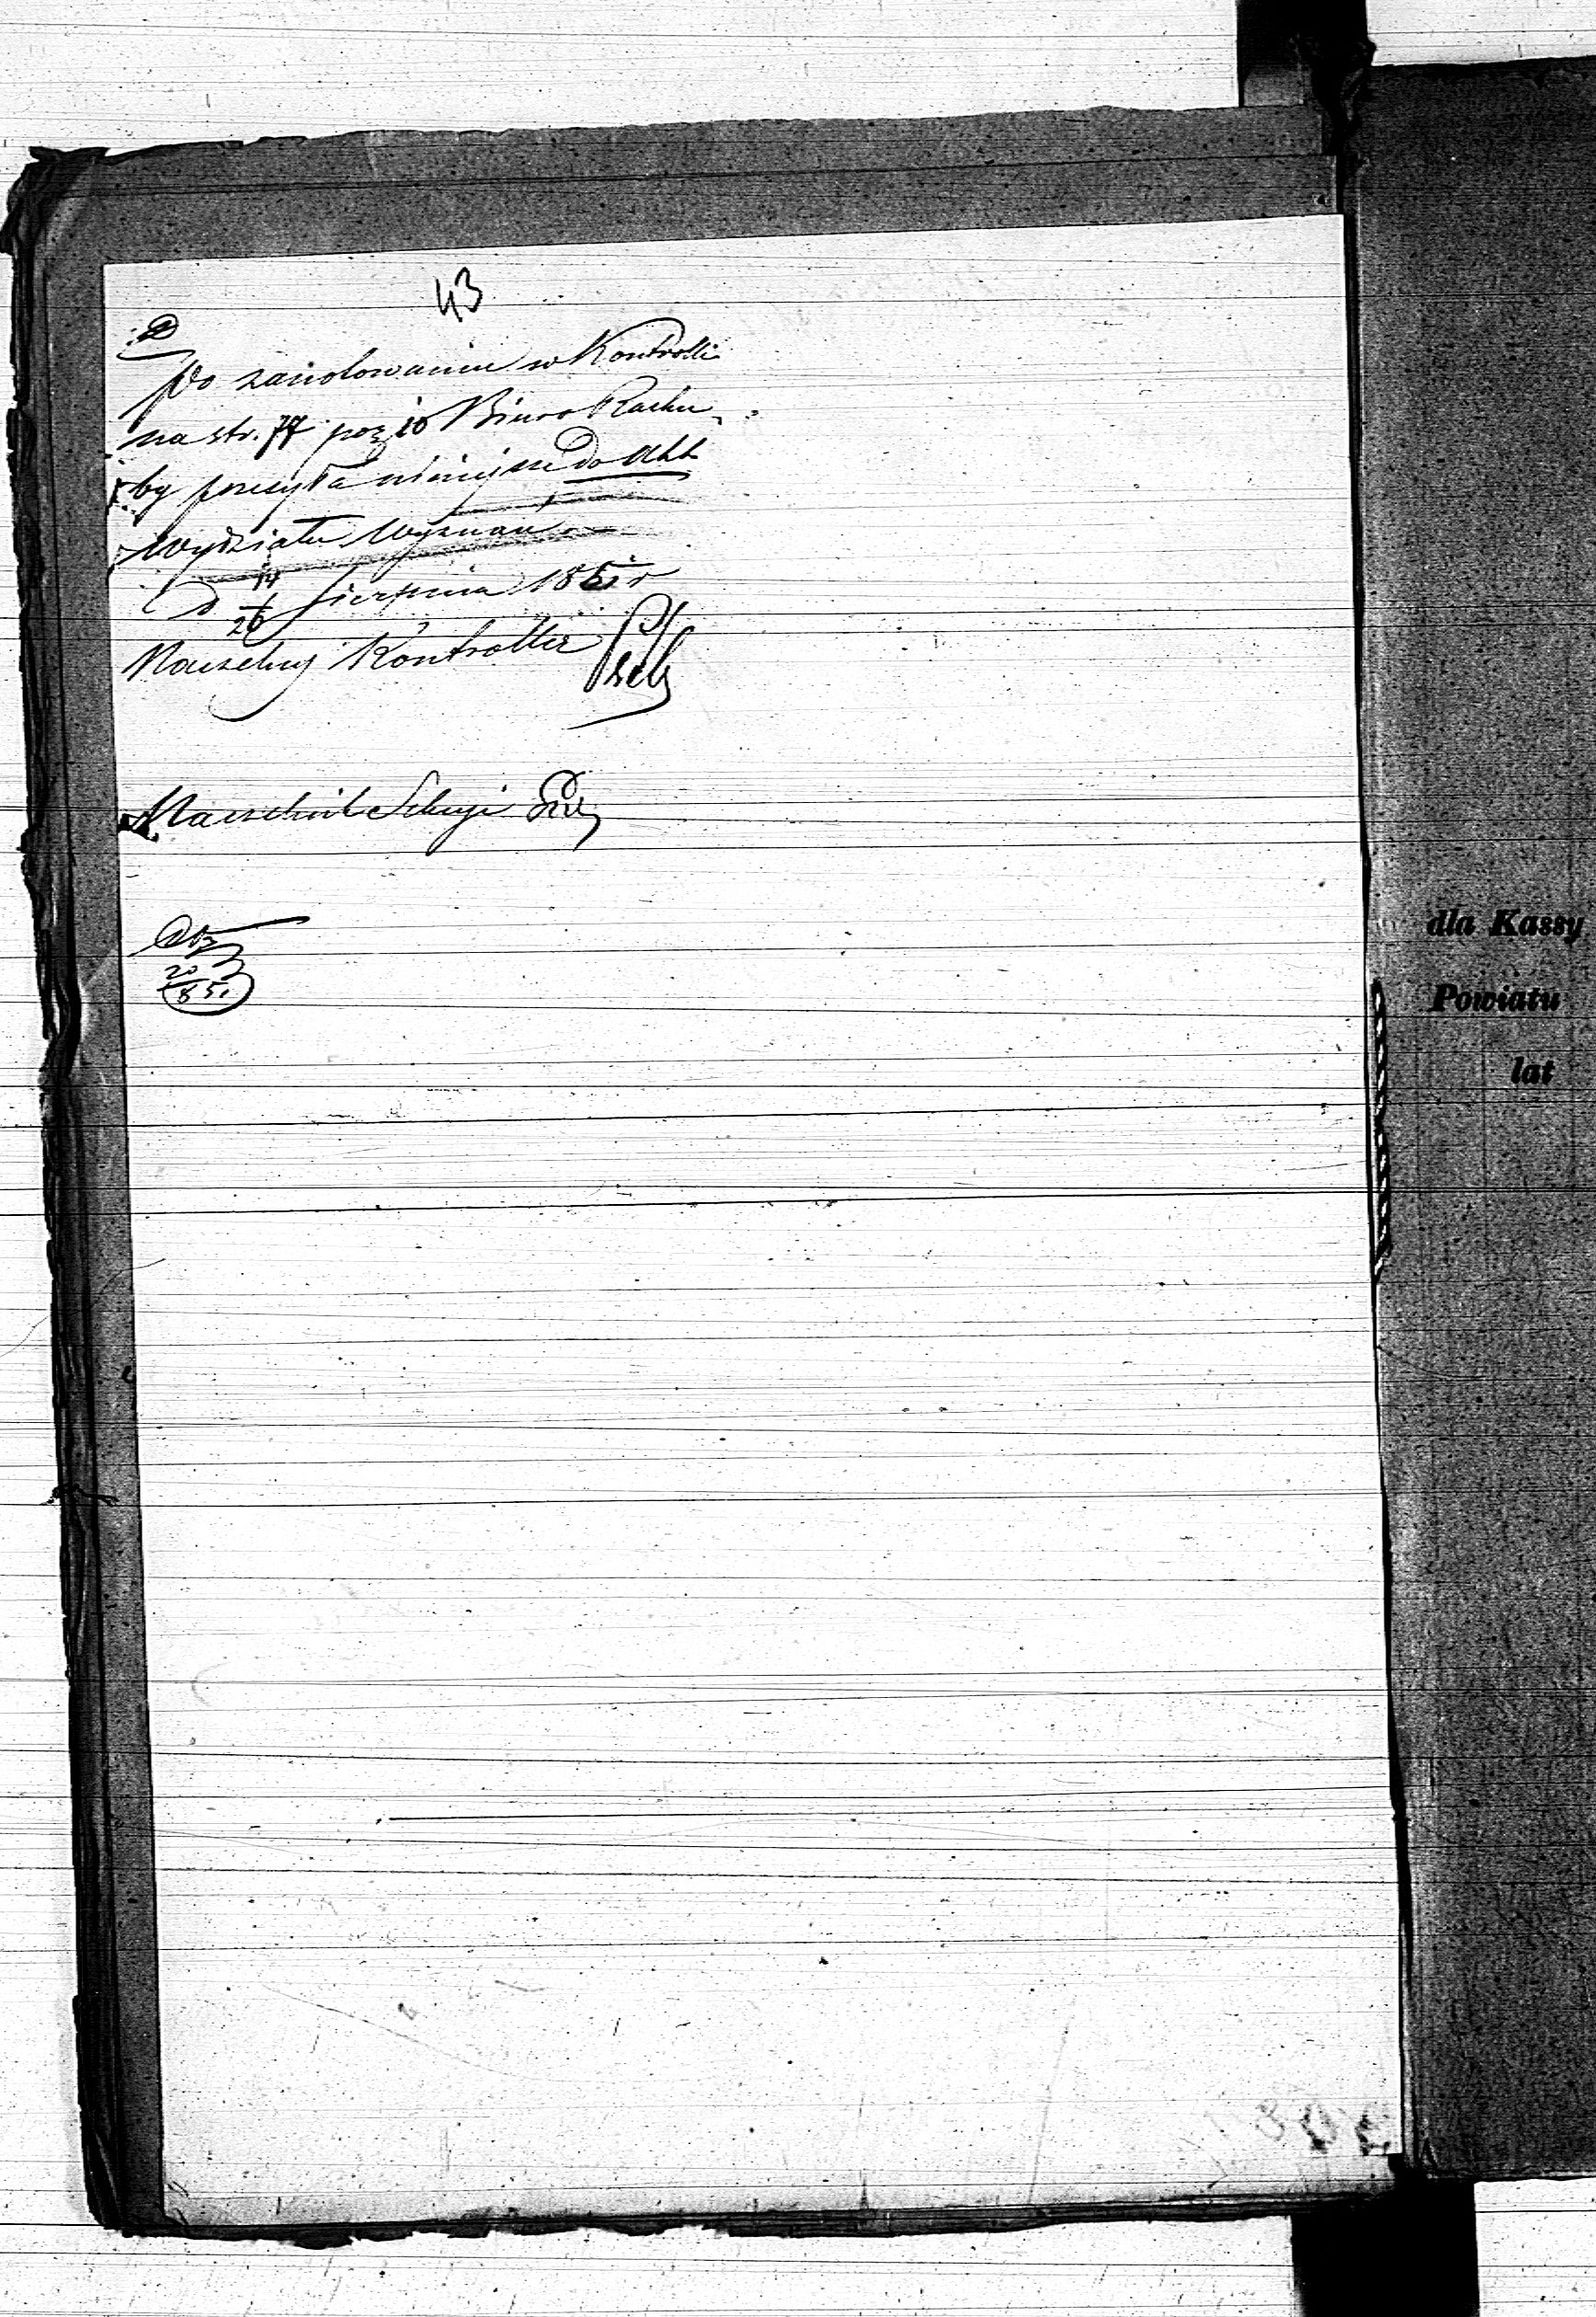 43
Po zanotowaniu w Kontrolli
na str. 77 poz 10 Biuro Rachu
by przesyła niniejsze do Akt
Wydziału Wyznań
d 14/26 Sierpnia 1851 r
Naczelny Kontroller
Naczelnik Sekcyi
20/8 51
dla Kassy
Powiatu
lat